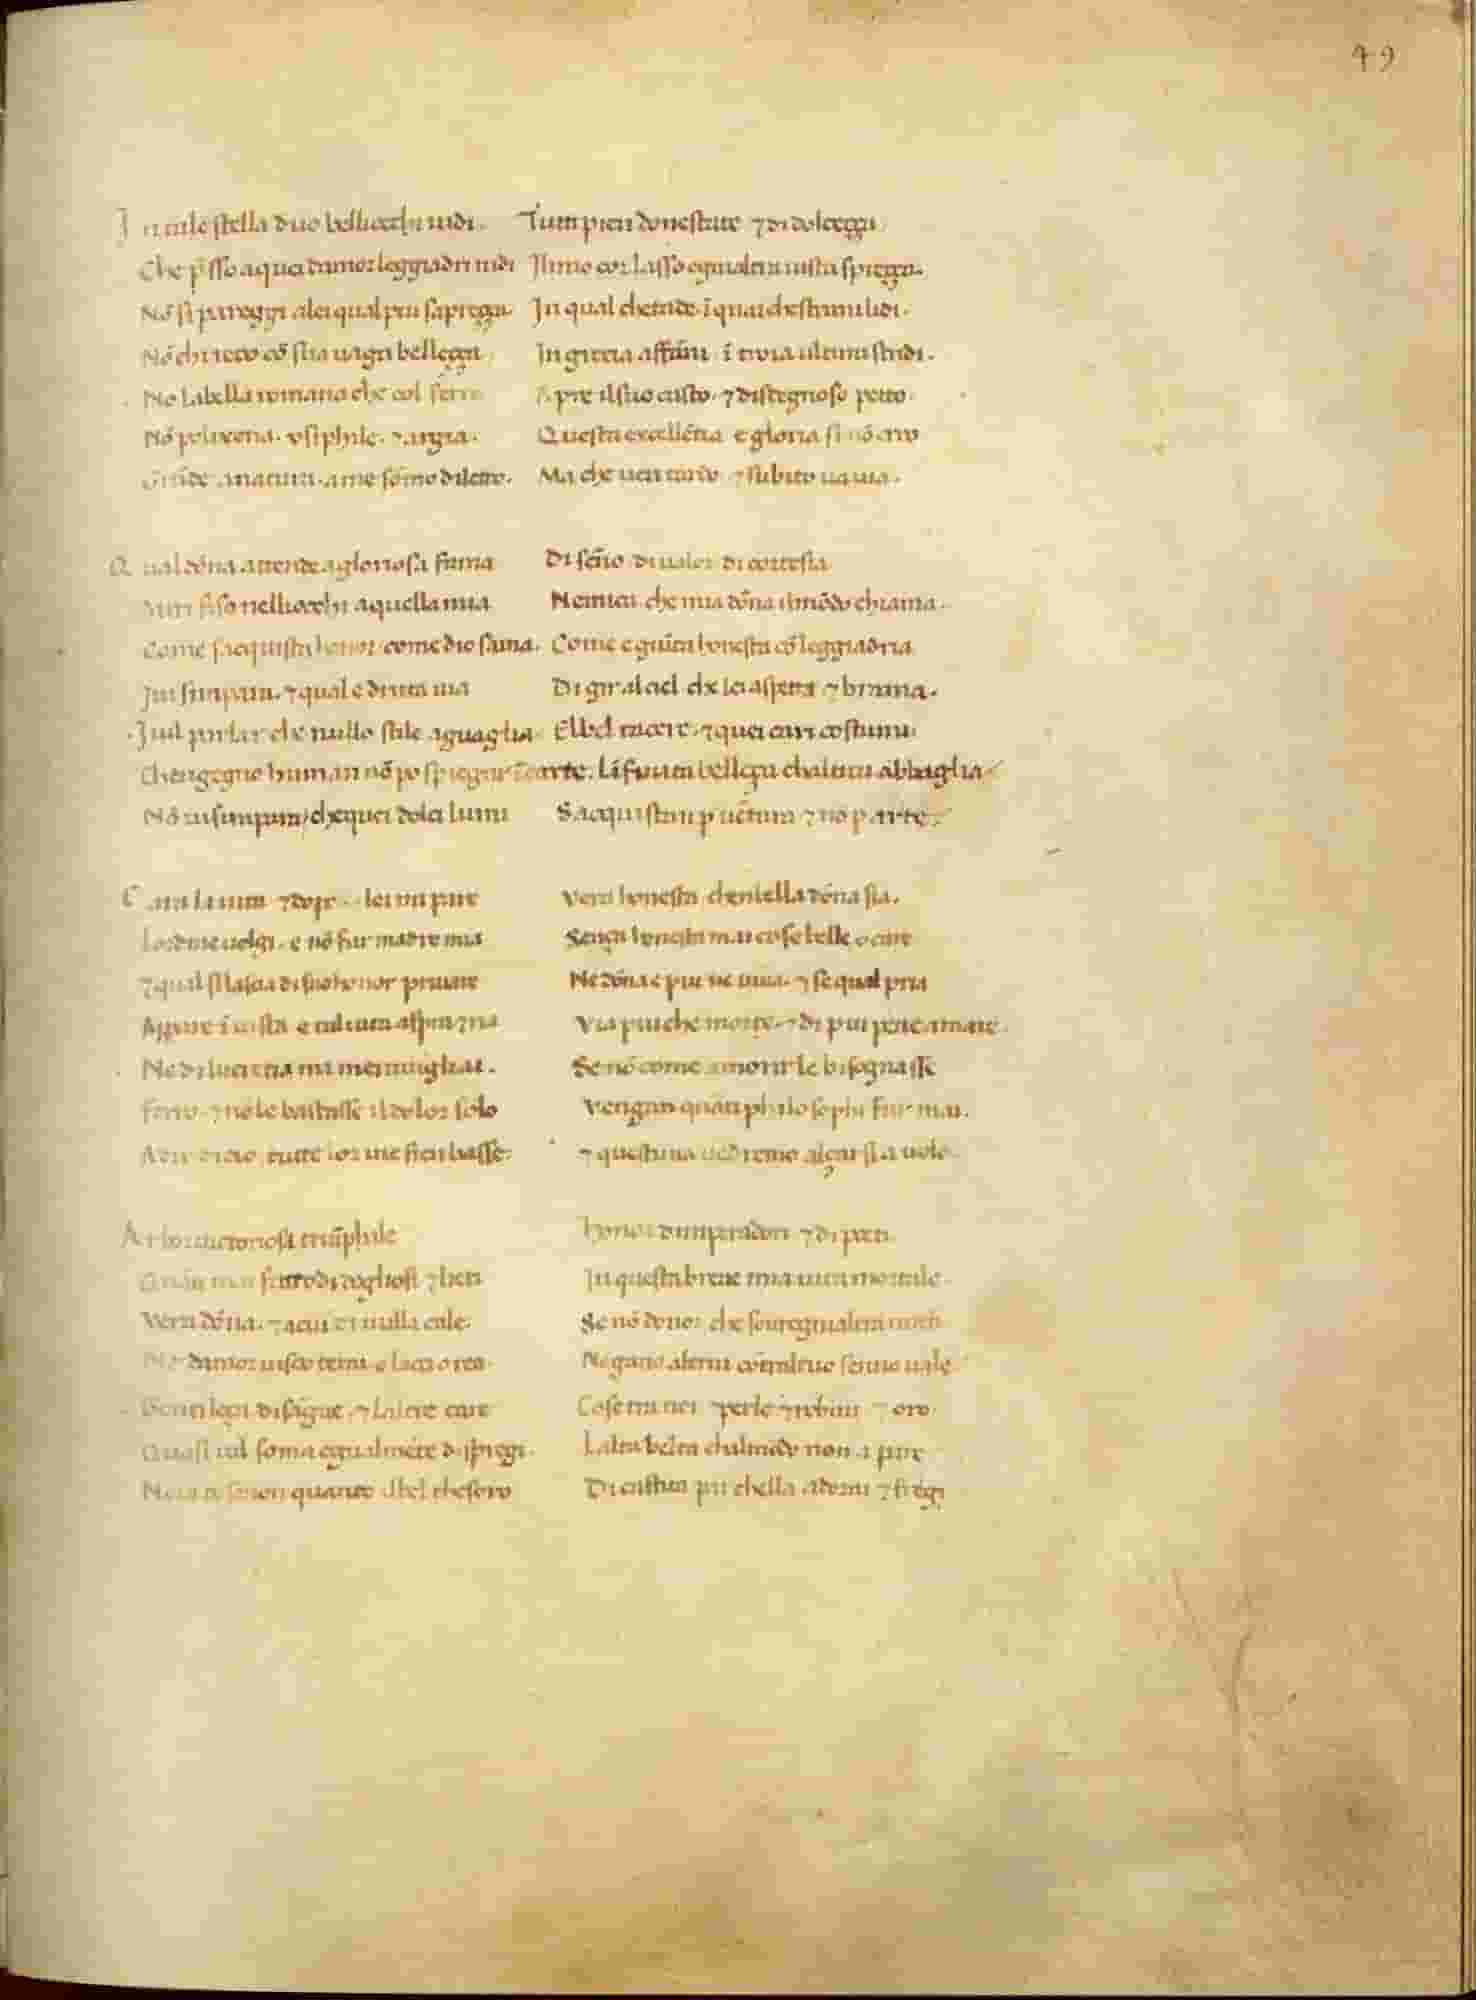 49
In tale stella duo belliocchi uidi. Tutti pien donestate ⁊ di dolcezza
Che p̄sso aquei damor leggiadri nidi Il mio cor lasso ognialtra uista sprezza.
Nō si pareggi alei qual piu saprezza In qual chetade. ī quai che strani lidi.
Nō chi reco cō sua uaga bellezza In grecia affāni ī troia ultimi stridi.
No la bella romana che col ferro Apre il suo casto. ⁊ disdegnoso petto.
Nō polixena. ysiphile. ⁊ argia. Questa excellētia e gloria si nō erro
Grāde a natura. a me sōmo diletto. Ma che uen tardo ⁊ subito ua uia.
Qual dōna attende a gloriosa fama Di sēno di ualor di cortesia
Miri fiso nelliocchi a quella mia Nemica che mia dōna il mōdo chiama.
Come sacquista honor come dio sama. Come e giūta honesta cō leggiadria
Iui simpara. ⁊ qual e dritta uia Di gir al ciel che lei aspetta ⁊ brama.
Iuil parlar che nullo stile aguaglia El bel tacere. ⁊ quei cari costumi
Chengegno human nō po spiegar ī carte. Līfinita bellezza chaltrui abbaglia
Nō ui simpara/che quei dolci lumi Sacquistan p uētura ⁊ nō p arte.
Cara la uita ⁊ dopo lei mi pare Vera honesta chen bella dōna sia.
Lordine uolgi. e nō fur madre mia Senza honesta mai cose belle o care
⁊ qual si lascia di suo honor priuare Ne dōna e piu ne uiua. ⁊ se qual pria
Appare ī uista e tal uita aspra ⁊ ria Via piu che morte. ⁊ di piu pene amare
Ne di lucretia mi merauigliai. Se nō come a morir le bisognasse
Ferro. ⁊ nō le bastasse il dolor solo Vengan quāti philosophi fur mai.
A dir di cio. tutte lor uie fien basse. ⁊ questuna uedremo alzarsi a uolo.
Arbor uictoriosa triūphale Honor dimperadori ⁊ di poeti
Quāti mai fatto di dogliosi ⁊ lieti In questa breue mia uita mortale
Vera dōna. ⁊ a cui di nulla cale. Se nō donor che soura ognialtra mieti
Ne damor uisco temi o lacci o reti. Ne gāno altrui cōtral tuo senno uale
Gentileza di sāgue ⁊ laltre care Cose tra noi perle ⁊ robini ⁊ oro
Quasi uil soma egualmēte dispregi. Lalta belta chal mōdo non a pare
Noia te senon quanto il bel thesoro Di castita par chella adorni ⁊ fregi